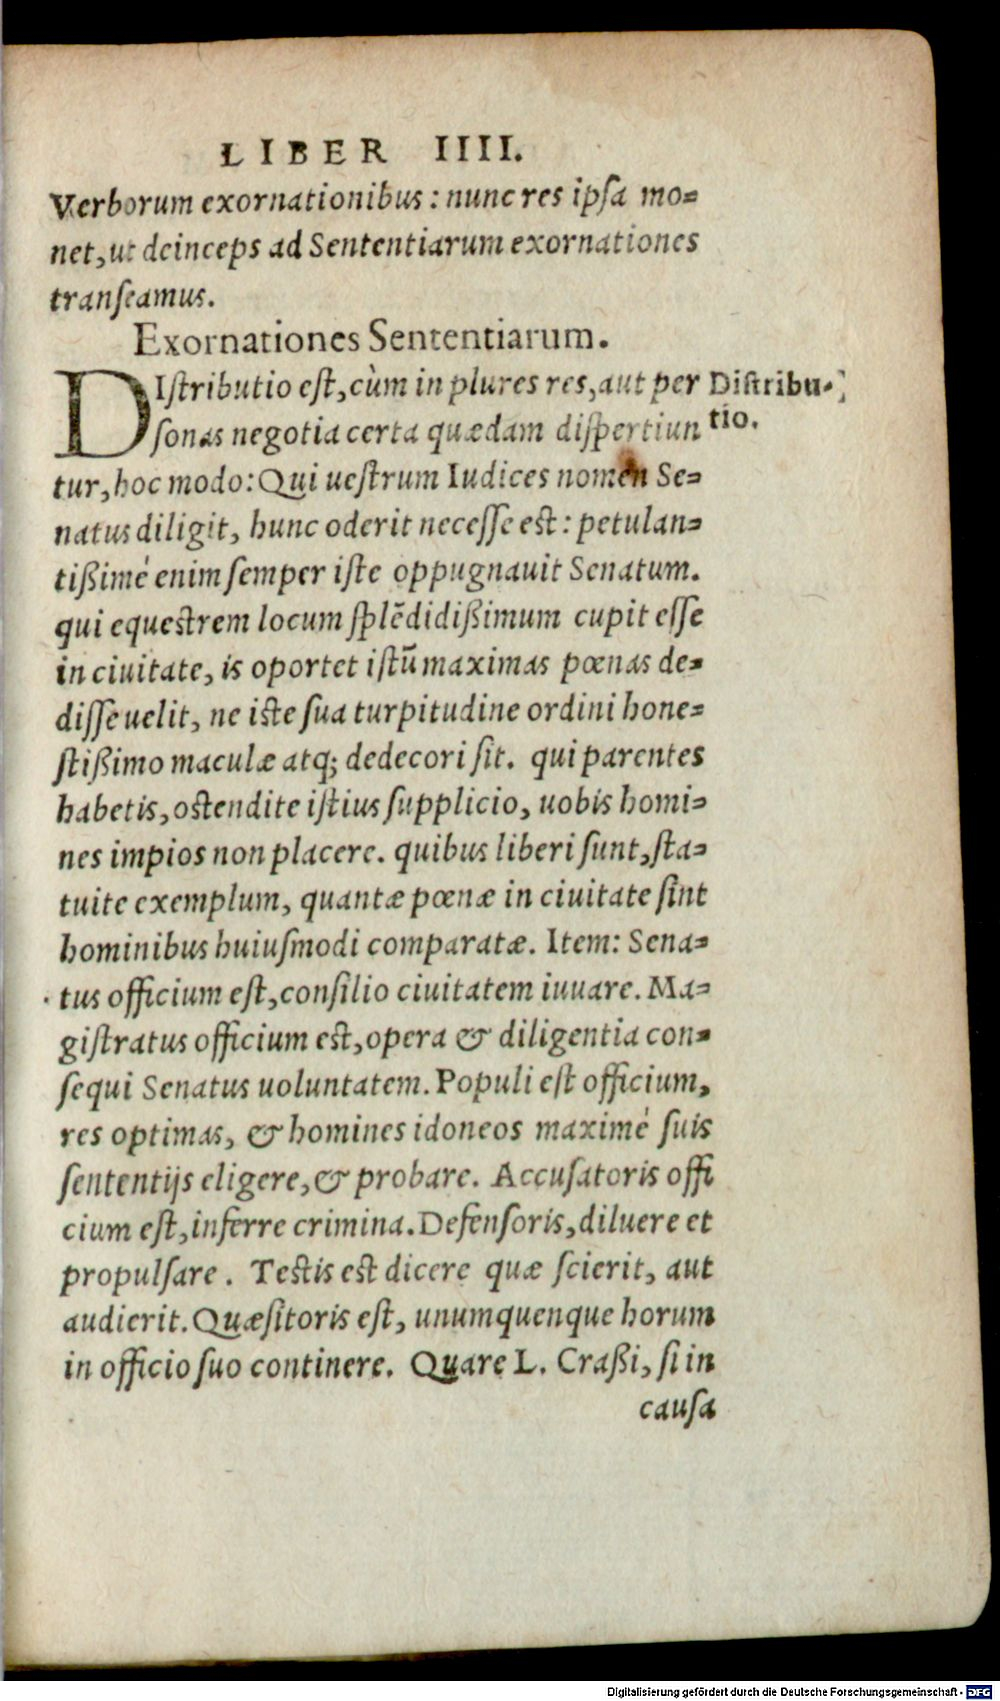 LIBER IIII.
Verborum exornationibus: nunc res ipſa mo=
net, ut deinceps ad Sententiarum exornationes
tranſeamus.
Exornationes Sententiarum.
DIſtributio eſt, cùm in plures res, aut per
ſonas negotia certa quædam diſpertiun
Diſtribu-
tio.
tur, hoc modo: Qui ueſtrum Iudices nomen Se=
natus diligit, hunc oderit neceſſe eſt: petulan=
tißimé enim ſemper iſte oppugnauit Senatum.
qui equeſtrem locum ſplẽdidißimum cupit eſſe
in ciuitate, is oportet iſtũ maximas pœnas de=
diſſe uelit, ne iſte ſua turpitudine ordini hone=
ſtißimo maculæ atq; dedecori ſit. qui parentes
habetis, oſtendite iſtius ſupplicio, uobis homi=
nes impios non placere. quibus liberi ſunt, ſta=
tuite exemplum, quantæ pœnæ in ciuitate ſint
hominibus huiuſmodi comparatæ. Item: Sena=
tus officium eſt, conſilio ciuitatem iuuare. Ma=
giſtratus officium eſt, opera & diligentia con=
ſequi Senatus uoluntatem. Populi eſt officium,
res optimas, & homines idoneos maximé ſuis
ſententijs eligere, & probare. Accuſatoris offi
cium eſt, inferre crimina. Defenſoris, diluere et
propulſare. Teſtis eſt dicere quæ ſcierit, aut
audierit. Quæſitoris eſt, unumquenque horum
in officio ſuo continere. Quare L. Craßi, ſi in
cauſa
Digitalisierung gefördert durch die Deutsche Forschungsgemeinschaft - DFG